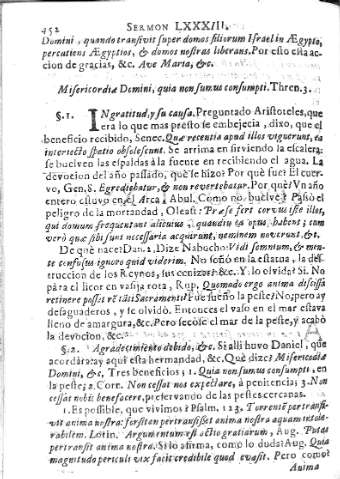 452 SERMON LXXXIII.
Domini, quando transivit super domos filiorum Israel in Ægypto,
percutiens Ægyptios, & domos nostras liberans. Por esto esta ac
cion de gracias, &c. Ave Maria, &c.
Misericordiæ Domini, quia non sumus consumpti. Thren. 3.
§. 1. INgratitud, y su causa. Preguntado Aristoteles, que
era lo que mas presto se embejecia, dixo, que el
beneficio recibido, Senec. Quæ recentia apud illos viguerunt,
interjecto spatio obsolescunt. Se arrima en sirviendo la escalera:
se buelven las espaldas à la fuente en recibiendo el agua. La
devocion del año passado, què se hizo? Por què fue? El cuer-
vo, Gen. 8. Egrediebatur, & non revertebatur. Por què? Vn año
entero estuvo en el Arca? Abul. Como no buelve? Passò el
peligro de la mortandad, Oleast. Præ se fert corvus iste illos,
qui domum frequentant alicuius, quandiu ea opus habent; cum
verò quæ sibi sunt necessaria acquirunt, neminem noverunt, &c.
De què nace? Dan. 2. Dize Nabucho: Vidi somnium, & men-
te confusus ignoro quid viderim. No soñò en la estatua, la des-
truccion de los Reynos, sus cenizas? &c. Y lo olvida? Si. No
para el licor en vasija rota, Rup. Quomodo ergo anima discissa
retinere posset rē tāti Sacramenti? Fue sueño la peste? No; pero ay
desaguaderos, y se olvidò. Entonces el vaso en el mar estava
lleno de amargura, &c. Pero secòse el mar de la peste, y acabò
la devocion, &c.
§. 2. Agradecimiento debido, &c. Si alli huvo Daniel, que
acordàra: ay aqui esta hermandad, &c. Què dize? Misericordiæ
Domini, &c. Tres beneficios; 1. Quia non sumus consumpti, en
la peste; 2. Corn. Non cessat nos expectare, à penitencia; 3. Non
cessat nobis benefacere, preservando de las pestes cercanas.
1. Es possible, que vivimos? Psalm. 123. Torrentē pertransi-
vit anima nostra: forsitan pertransisset anima nostra aquam into-
rabilem. Lorin. Argumentum est actio gratiarum, Aug. Putas
pertransit anima nostra. Si lo afirma, como lo duda? Aug. Quia
magnitudo periculi vix facit credibile quod evasit. Pero como?
Anima